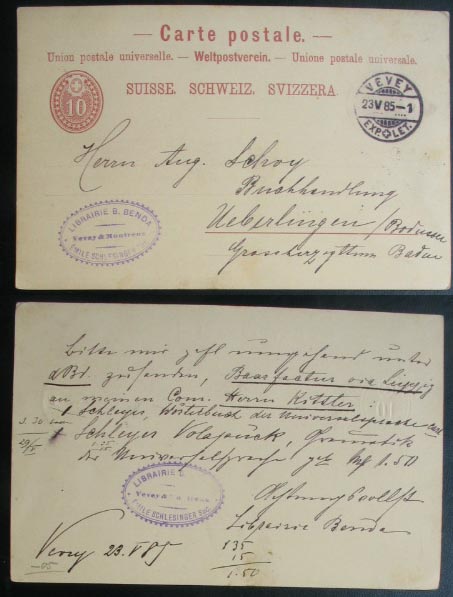 — Carte postale. —
Union postale universelle. — Weltpostverein. — Unione postale universale.
SUISSE. SCHWEIZ. SVIZZERA.
10
VEVEY
23 V 85 – 1
EXP. LET.
Herrn Aug. Schoy
Buchhandlung
Ueberlingen / Bodensee
Grossherzogthum Baden
LIBRAIRIE B. BENDA
Vevey & Montreux
EMILE SCHLESINGER
Bitte mir gefl umgehend unter
zusenden, Baarfactur via Leipzig
an meinen Com. Herrn Kittler:
1 Schleyer, Wörterbuch der Universalsprache
1 Schleyer Volapück, Grammatik
der Universalsprache 1.50
Achtungsvollst
Librairie Benda
LIBRAIRIE
EMILE SCHLESINGER SUC
Vevey 23. V 85
135
15
1.50